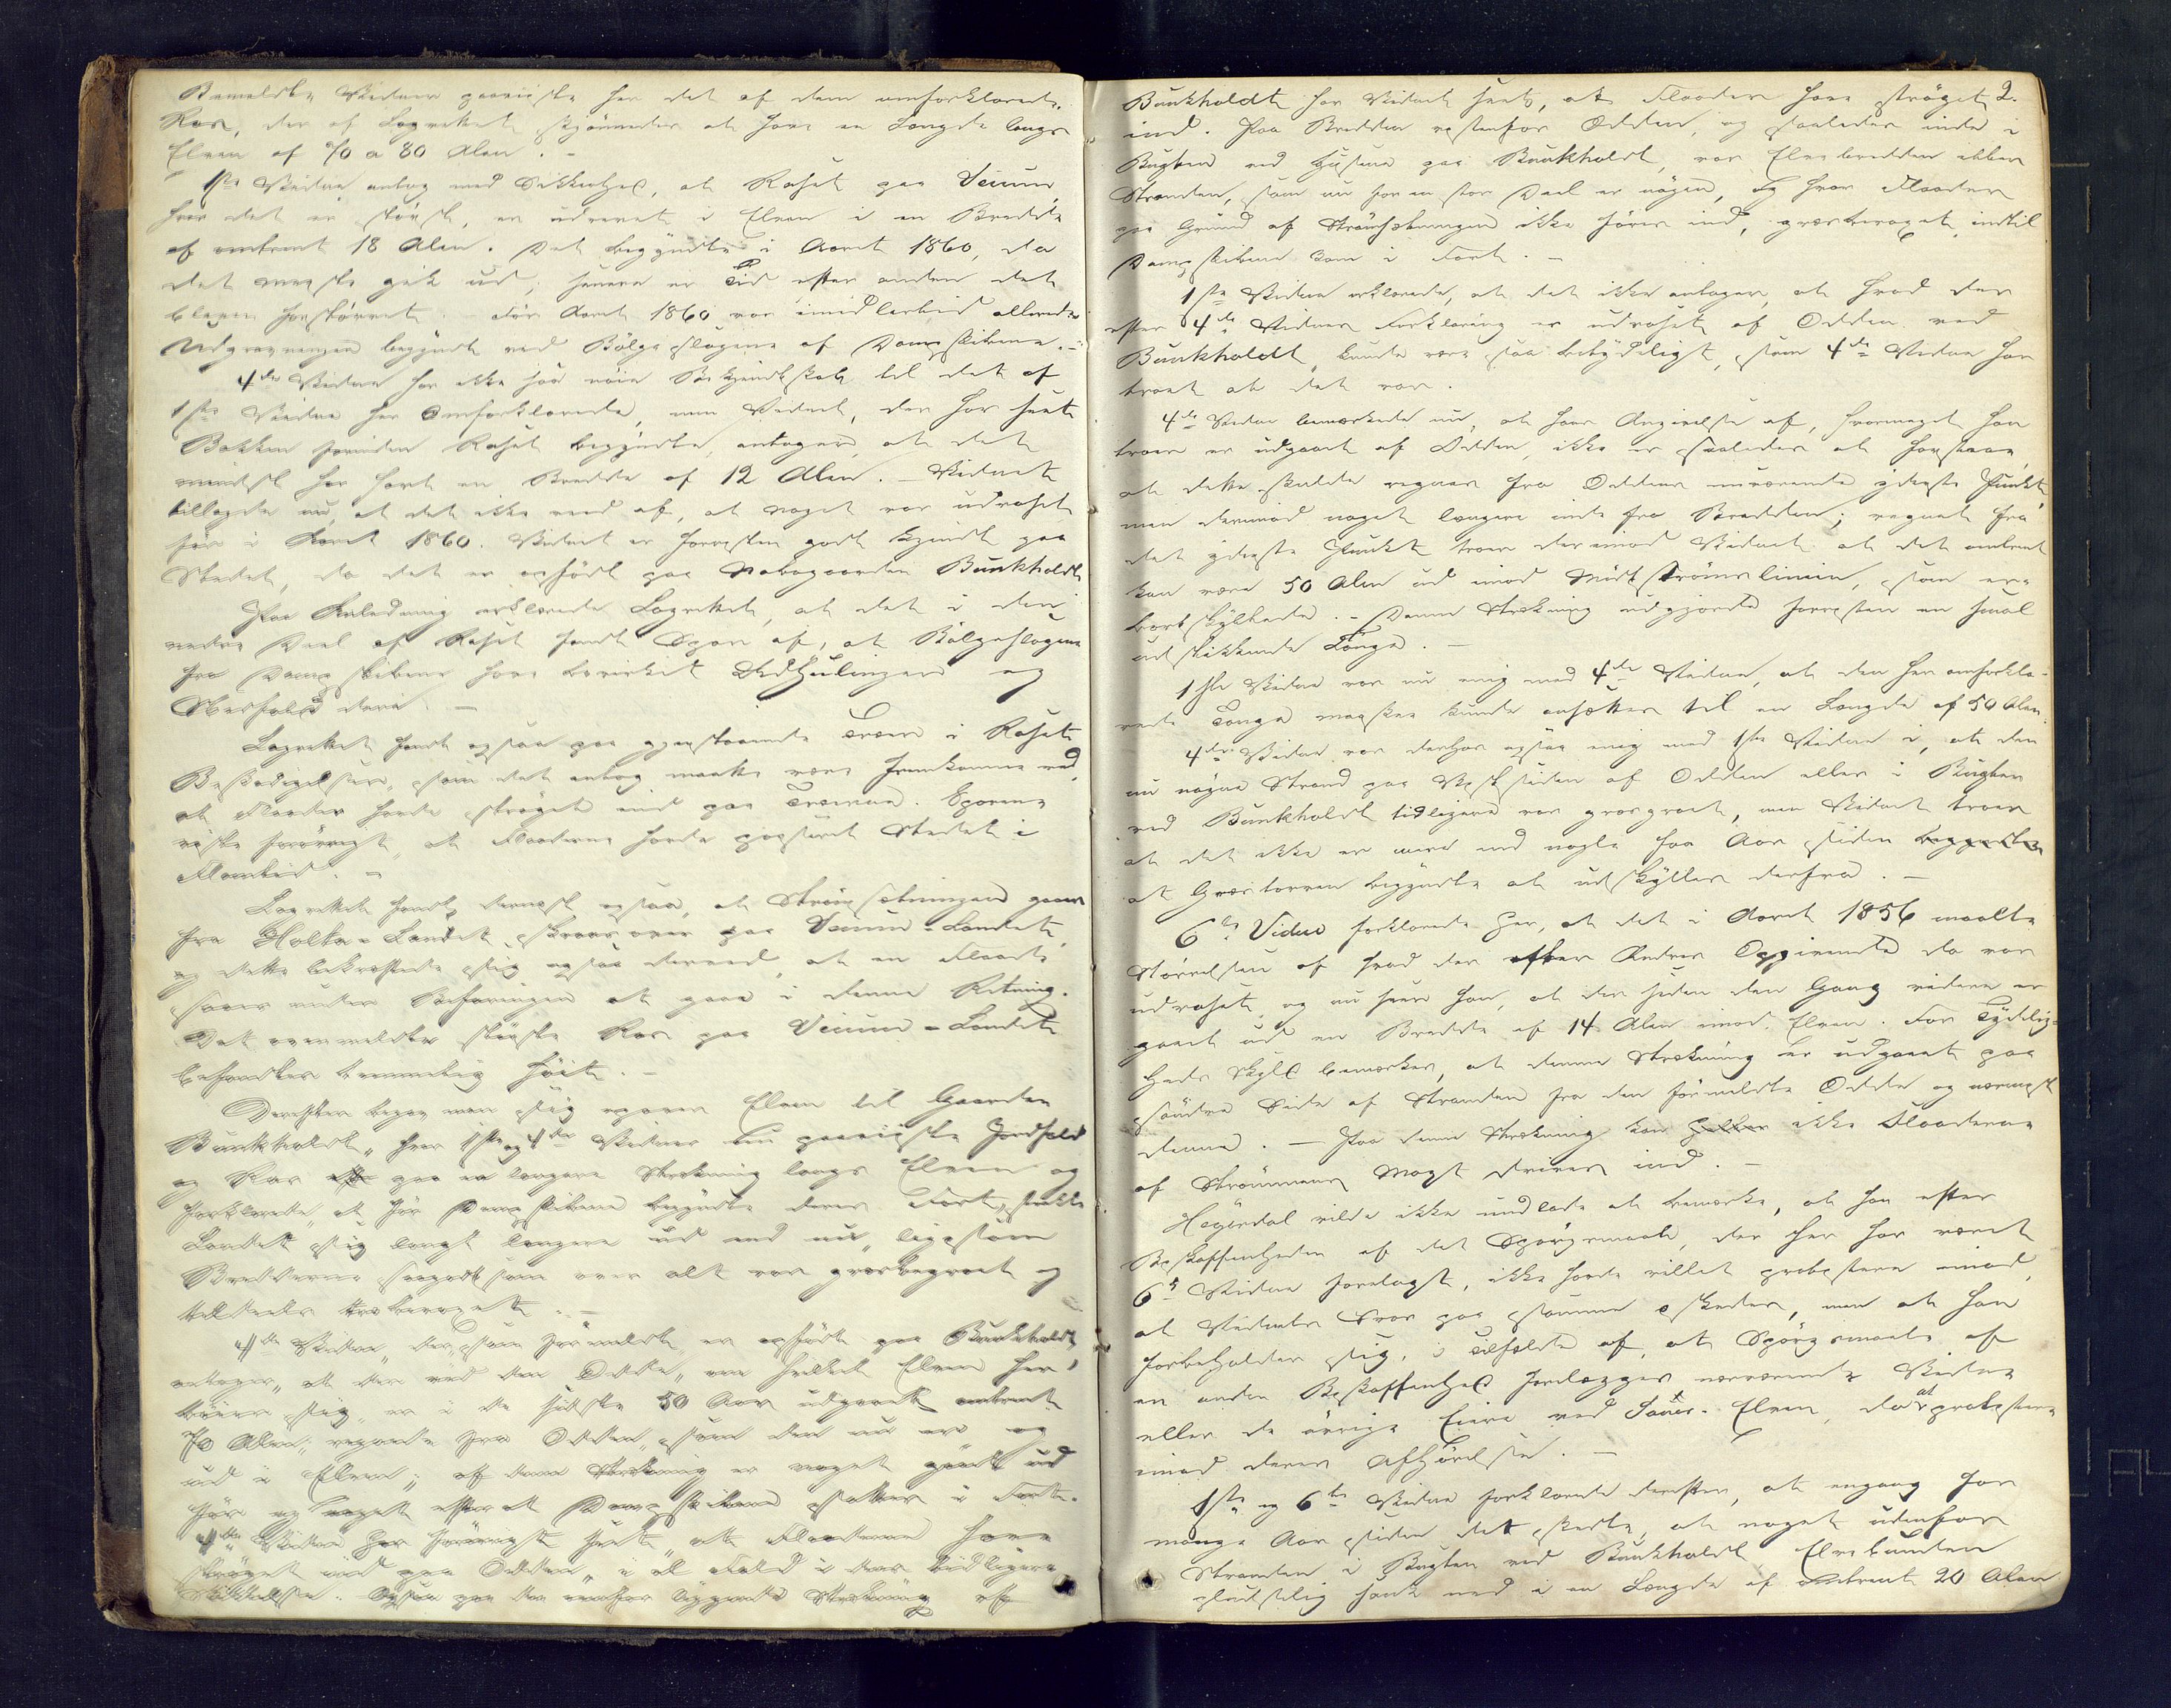 Bemeldte Vidner paaviiste her det af dem omforklarede
Ras, der af Lagrettet skjønnedes at have en Længde langs
Elven af 70 a 80 Alen. -
1ste Vidne antog med Sikkerhed, at Raset paa Veium
hvor det er størst, er udrevet i Elven i en Bredde
af omtrent 18 Alen. Det begyndte i Aaret 1860, da
det meeste gik ud; senere er Tid efter anden det
bleven forstørret. Før Aaret 1860 var imidlertid allerede
Udgravningen begyndt ved Bølgeslagene af Dampskibene. -
4de Vidne har ikke saa nøie Bekjendtskab til det af
1ste Vidne her Omforklarede, men Vidnet, der har seet
Bakken forinden Raset begyndte, antager, at det
mindst har havt en Bredde af 12 Alen. - Vidnet
tillagde nu, at det ikke veed af, at noget var udraset
før i Aaret 1860. Vidnet er forresten godt kjendt paa
Stedet, da det er opfødt paa Nabogaarden Bunkholdt
Paa Anledning erklærede Lagrettet, at det i den
nedre Deel af Raset fandt Spor af, at Bølgeslagene
fra Dampskibene have bevirket Udhulinger og
deri. -
Lagrettet fandt ogsaa paa gjenstaaende Træer i Raset
Beskadigelser, som det antog maatte være fremkomne ved,
at Flaader havde strøget ind paa Træerne. Sporene
viste forøvrigt, at Flaaderne havde passeret Stedet i
Flomtid. -
Lagrettet fandt dernæst ogsaa, at Strømsætningen gaaer
fra Holta-Landet skraas over paa Veium-Landet,
og dette bekræftede sig ogsaa derved, at en Flaade
saaes under Befaringen at gaae i denne Retning.
Det ovenmeldte største Ras paa Veium-Landet
befandtes temmelig høit. -
Derefter begav man sig op over Elven til Gaarden
Bunkholdt, hvor 1ste og 4de Vidner nu paaviiste Jordfald
og Ras paa en længere Strækning langs Elven og
forklarede, at før Dampskibene begyndte deres Fart, strakte
Landet sig langt længere ud end nu, ligesom
Bredderne saagodtsom over alt var græsbegroet og
tildeels træbevoxet. -
4de Vidne, der, som førmeldt er opfødt paa Bunkholdt,
antager, at der ved den Odde, om hvilket Elven her
bøier sig, er i de sidste 50 Aar udgaaet omtrent
70 Alen, regnede fra Odden, som den nu er og
ud i Elven; af denne Strækning er noget gaaet ud
før og noget efterat Dampskibene sattes i Fart.
4de Vidne har forøvrigt seet, at Flaaderne have
strøget ind paa Odden, i al Fald i dens tidligere
Skikkelse. Ogsaa paa den ovenfor liggende Strækning af
2.
Bunkholdt har Vidnet seet, at Flaader have strøget
ind. Paa Bredden vestenfor Odden, og saaledes inde i
Bugten ved Husene paa Bunkholdt, var Elvebredden eller
Stranden, som nu for en stor Deel er nøgen, og hvor Flaader
paa Grund af Strømsætningen ikke føres ind, græsbevoxet indtil
Dampskibene kom i Fart. -
1ste Vidne erklærede, at det ikke antager, at hvad der
efter 4de Vidnes Forklaring er udraset af Odden ved
Bunkholdt, kunde være saa betydeligt, som 4de Vidne har
troet at det var.
4de Vidne bemærkede nu, at hans Angivelse af, hvormeget han
troer er udgaaet af Odden, ikke er saaledes at forstaae,
at dette skulde regnes fra Oddens nuværende yderste Punkt,
men derimod noget længere inde fra Bredden; regnet fra
det yderste Punkt troer derimod Vidnet at det omtrent
kan være 50 Alen ud imod Midtstrømslinien, som er
bortskyllede. - Denne Strækning udgjorde forresten en smal
udstikkende Tange. -
1ste Vidne var nu enig med 4de Vidne, at den her omforkla-
rede Tange maaskee kunde ansættes til en Længde af 50 Alen.
4de Vidne var derhos ogsaa enig med 1ste Vidne i, at den
nu nøgne Strand paa Vestsiden af Odden eller i Bugten
ved Bunkholdt tidligere var græsgroet, men Vidnet troer
at det ikke er mere end nogle faa Aar siden
at Græstorven begyndte at udskylles derfra. -
6te Vidne forklarede her, at det i Aaret 1856 maalte
Størrelsen af hvad der efter Andres Opgivende da var
udraset, og nu seer han, at der siden den Gang videre er
gaaet ud en Bredde af 14 Alen imod Elven. For Tydelig-
heds Skyld bemærkes, at denne Strækning er udgaaet paa
søndre Side af Stranden fra den førmeldte Odde og nærmest
denne. - Paa denne Strækning kan heller ikke Flaaderne
af Strømmens Magt drives ind. -
Heyerdal vilde ikke undlade at bemærke, at han efter
Beskaffenheden af det Spørgsmaal, der her har været
6te Vidne forelagt, ikke havde villet protestere imod,
at Vidnets Svar paa samme skeder, men at han
forbeholder sig, i Tilfælde af, at Spørgsmaal af
en anden Beskaffenhed forelægges nærværende Vidne
eller de øvrige Eiere ved Elven, da at protestere
imod deres Afhørelse. -
1ste og 6te Vidne forklarede derefter, at engang for
mange Aar siden det skede, at noget udenfor
Stranden i Bugten ved Bunkholdt Elvebunden
pludselig sank ned i en Længde af omtrent 20 Alen